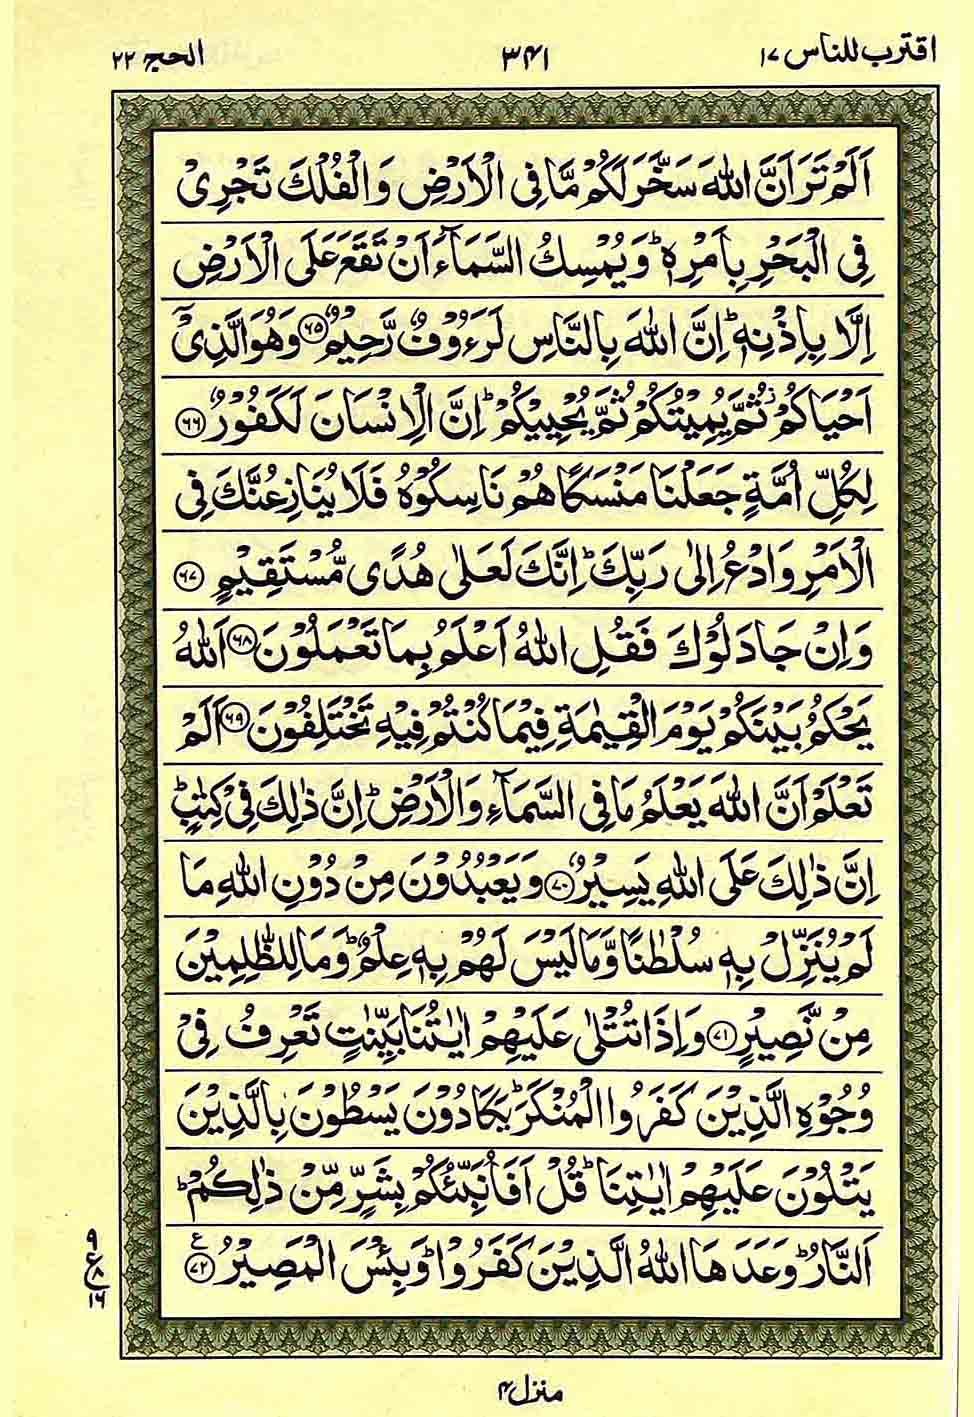 اقترب للناس ١٧ ٣٤١ الحج ٢٢
اَلَمْ تَرَ اَنَّ اللّٰهَ سَخَّرَ لَكُمْ مَّا فِى الْاَرْضِ وَالْفُلْكَ تَجْرِىْ
فِى الْبَحْرِ بِاَمْرِهٖؕ وَيُمْسِكُ السَّمَآءَ اَنْ تَقَعَ عَلَى الْاَرْضِ
اِلَّا بِاِذْنِهٖؕ اِنَّ اللّٰهَ بِالنَّاسِ لَرَءُوْفٌ رَّحِيْمٌ ﴿٦٥﴾ وَهُوَ الَّذِىْۤ
اَحْيَاكُمْ ثُمَّ يُمِيْتُكُمْ ثُمَّ يُحْيِيْكُمْؕ اِنَّ الْاِنْسَانَ لَكَفُوْرٌ ﴿٦٦﴾
لِكُلِّ اُمَّةٍ جَعَلْنَا مَنْسَكًا هُمْ نَاسِكُوْهُ فَلَا يُنَازِعُنَّكَ فِى
الْاَمْرِ وَادْعُ اِلٰى رَبِّكَؕ اِنَّكَ لَعَلٰى هُدًى مُّسْتَقِيْمٍ ﴿٦٧﴾
وَاِنْ جَادَلُوْكَ فَقُلِ اللّٰهُ اَعْلَمُ بِمَا تَعْمَلُوْنَ ﴿٦٨﴾ اَللّٰهُ
يَحْكُمُ بَيْنَكُمْ يَوْمَ الْقِيٰمَةِ فِيْمَا كُنْتُمْ فِيْهِ تَخْتَلِفُوْنَ ﴿٦٩﴾ اَلَمْ
تَعْلَمْ اَنَّ اللّٰهَ يَعْلَمُ مَا فِى السَّمَآءِ وَالْاَرْضِؕ اِنَّ ذٰلِكَ فِىْ كِتٰبٍؕ
اِنَّ ذٰلِكَ عَلَى اللّٰهِ يَسِيْرٌ ﴿٧٠﴾ وَيَعْبُدُوْنَ مِنْ دُوْنِ اللّٰهِ مَا
لَمْ يُنَزِّلْ بِهٖ سُلْطٰنًا وَّمَا لَيْسَ لَهُمْ بِهٖ عِلْمٌؕ وَمَا لِلظّٰلِمِيْنَ
مِنْ نَّصِيْرٍ ﴿٧١﴾ وَاِذَا تُتْلٰى عَلَيْهِمْ اٰيٰتُنَا بَيِّنٰتٍ تَعْرِفُ فِىْ
وُجُوْهِ الَّذِيْنَ كَفَرُوا الْمُنْكَرَؕ يَكَادُوْنَ يَسْطُوْنَ بِالَّذِيْنَ
يَتْلُوْنَ عَلَيْهِمْ اٰيٰتِنَاؕ قُلْ اَفَاُنَبِّئُكُمْ بِشَرٍّ مِّنْ ذٰلِكُمْؕ
اَلنَّارُؕ وَعَدَهَا اللّٰهُ الَّذِيْنَ كَفَرُوْاؕ وَبِئْسَ الْمَصِيْرُ ﴿٧٢﴾ ع
٩
ع ٨
١٦
منزل ٤